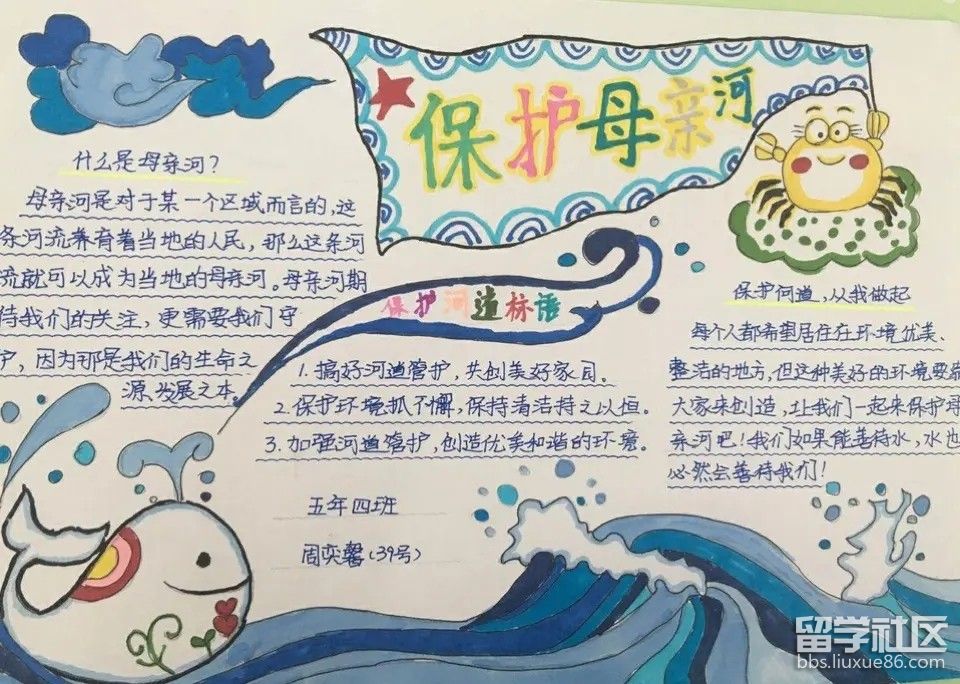 保护母亲河
什么是母亲河？
母亲河是对于某一个区域而言的,这
条河流养育着当地的人民，那么这条河
流就可以成为当地的母亲河。母亲河期
待我们的关注，更需要我们守
护，因为那是我们的生命之
源,发展之本。
保护河道标语
1.搞好河道管护，共创美好家园。
2.保护环境抓不懈，保持清洁持之以恒。
3.加强河道管护，创造优美和谐的环境。
五年四班
周奕馨(39号)
保护河道，从我做起
每个人都希望居住在环境优美、
整洁的地方,但这种美好的环境要靠
大家来创造，让我们一起来保护母
亲河吧！我们如果能善待水，水也
必然会善待我们！
留学社区
bbs.liuxue86.com